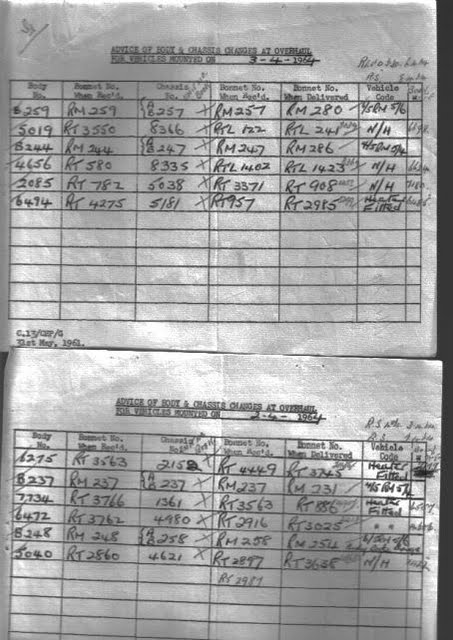 ADVICE OF BODY & CHASSIS CHANGES AT OVERHAUL
FOR VEHICLES MOUNTED ON 3-4-1964
Body No. Bonnet No. When Rec'd. Chassis No. Bonnet No. When Rec'd. Bonnet No. When Delivered Vehicle Code
B259 RM 259 {A B 257 RM 257 RM 280 4/5RM 5/6
5019 RT 3550 8366 RTL 122 RTL 241 N/H
B244 RM 244 {A B 247 RM 247 RM 286 4/5RM 5/4
4656 RT 580 8335 RTL 1402 RTL 1423 N/H
2085 RT 782 5038 RT 3371 RT 908 N/H
6494 RT 4275 5181 RT 957 RT 2985 Heater Fitted
C.13/CHF/G
31st May, 1961.
ADVICE OF BODY & CHASSIS CHANGES AT OVERHAUL
FOR VEHICLES MOUNTED ON 2-4-1964
Body No. Bonnet No. When Rec'd. Chassis No. Bonnet No. When Rec'd. Bonnet No. When Delivered Vehicle Code
6275 RT 3563 2152 RT 4449 RT 3745 Heater Fitted
B237 RM 237 {A B 237 RM 237 RM 731 4/5 RM 5/4
7734 RT 3766 1361 RT 3563 RT 886 Heater Fitted
6472 RT 3762 4980 RT 2916 RT 3025 " "
B248 RM 248 {A B 258 RM 258 RM 254
5040 RT 2860 4621 RT 2897 RT 3638 N/H
RT 2987